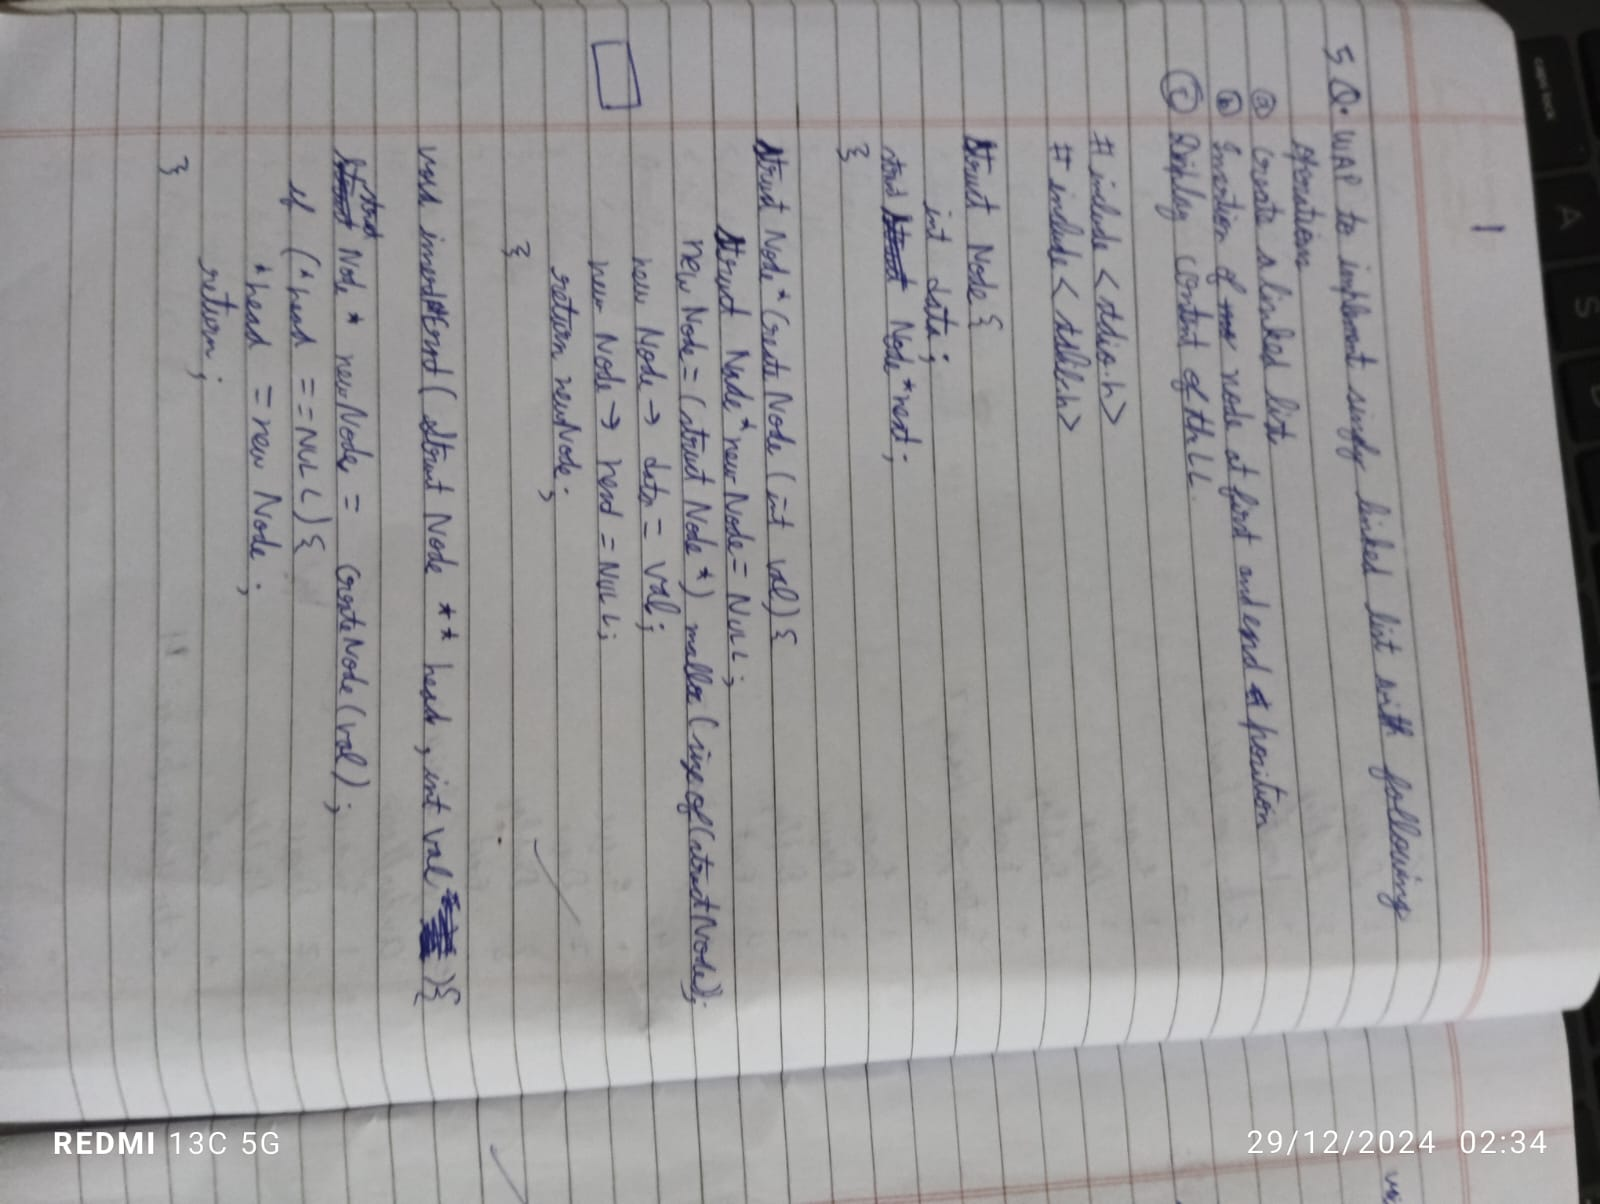 1
5 Q. WAP to implement singly linked list with following
operations
(a) create a linked list
(b) Insertion of node at first and end position
(c) Display content of th LL.
# include < stdio.h>
# include < stdlib.h>
struct Node {
int data;
struct Node * next;
}
struct Node * Create Node (int val) {
struct Node * new Node = NULL;
new Node = (struct Node *) malloc (size of (struct Node));
new Node → data = val;
new Node → next = NULL;
return newNode;
}
void insert End ( struct Node ** head , int val ) {
struct Node * newNode = createNode (val) ;
if ( * head == NULL ) {
* head = new Node ;
return ;
}
REDMI 13C 5G
29/12/2024 02:34
caps lock
A
S
D